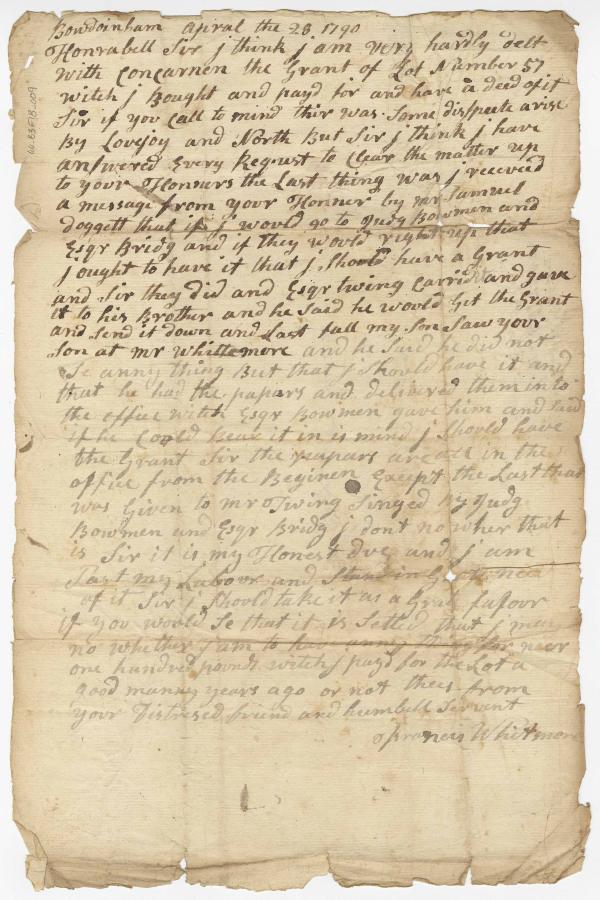 Bowdoinham Apral the 28 1790
Honrabell Sir j think j am very hardly delt
with Concarnen the Grant of Lot Number 57
witch j Bought and payd for and have a deed of it
Sir if you call to mind thir was Some disspeute arise
By Lovejoy and North But Sir j think j have
answered Every Request to Clear the matter up
to your Honours the Last thing was j receved
a message from your Honner by mr Samuel
doggett that if I would go to Judg Bowman and
Esqr Bridg and if they would right up that
j ought to have it that j Should have a Grant
and Sir they did and Esqr twing Carrid and gave
it to his Brother and he Said he would Get the Grant
and Send it down and Last fall my Son Saw your
Son at mr Whittemore and he Said he did not
Se anny thing But that j Should have it and
that he had the papars and delivered them in to
the office witch Esqr Bowmen gave him and Said
if he Could Bear it in is mind j Should have
the Grant Sir the papars are all in the
office from the Beginen Except the Last that
was Given to mr Twing Singed By Judg
Bowmen and Esqr Bridg j dont no wher that
is Sir it is my Honest due and j am
Last my Labour and Stand in Grate need
of it Sir j Should take it as a Grat favour
if you would Se that it is Setled that j may
no whether j am to have anny thing for near
one hundred pounds witch j payd for the Lot a
good manny years ago or not thes from
your Distresed friend and humbell Servent
Francis Whitmore